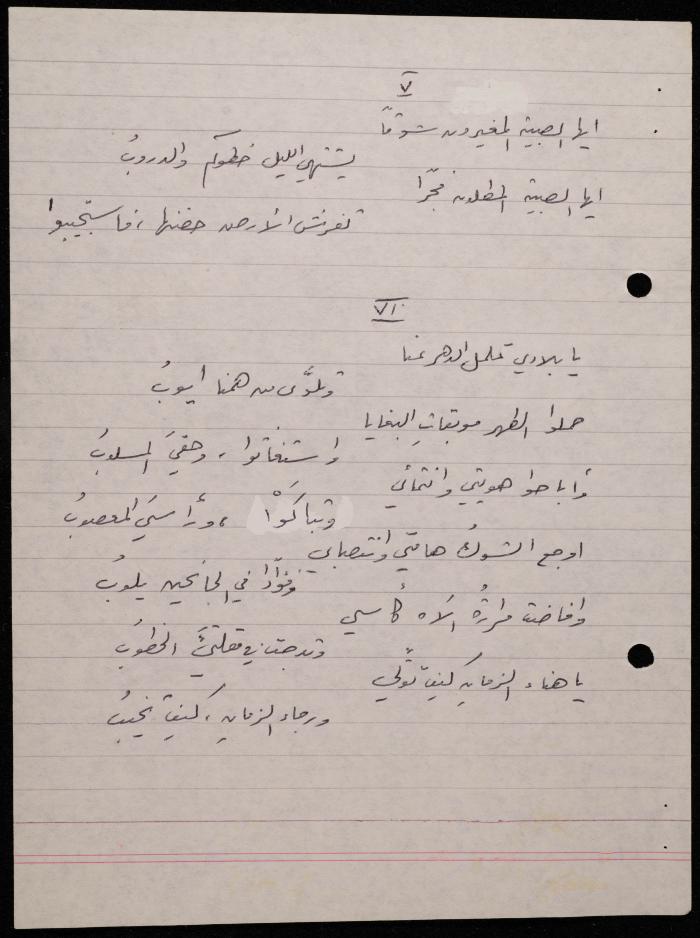 V
ايها الصبية المغيرون شوقاً
يشتهي الليل خطوكم والدروبُ
ايها الصبية المطلون فجراً
تفرش الأرض حضنها، فاستجيبوا
VI
يا بلادي تململ الدهر عنا
وتلوَّى من همنا ايوبُ
حملوا الطهر موبقاتِ البغايا
واستغاثوا، وحقيَ المسلوبُ
وأباحوا هويتي وانتمائي
وتباكَوْا، ورأسيَ المعصوبُ
اوجع الشوكُ هامتي وانتصابي
وفؤاداً في الجانحين يلوبُ
وافاضت مرارةُ الآه كأسي
وتدجت في مقلتيَّ الخطوبُ
يا هناء الزمانِ كيف تولّي
ورجاء الزمانِ، كيف تخيبُ